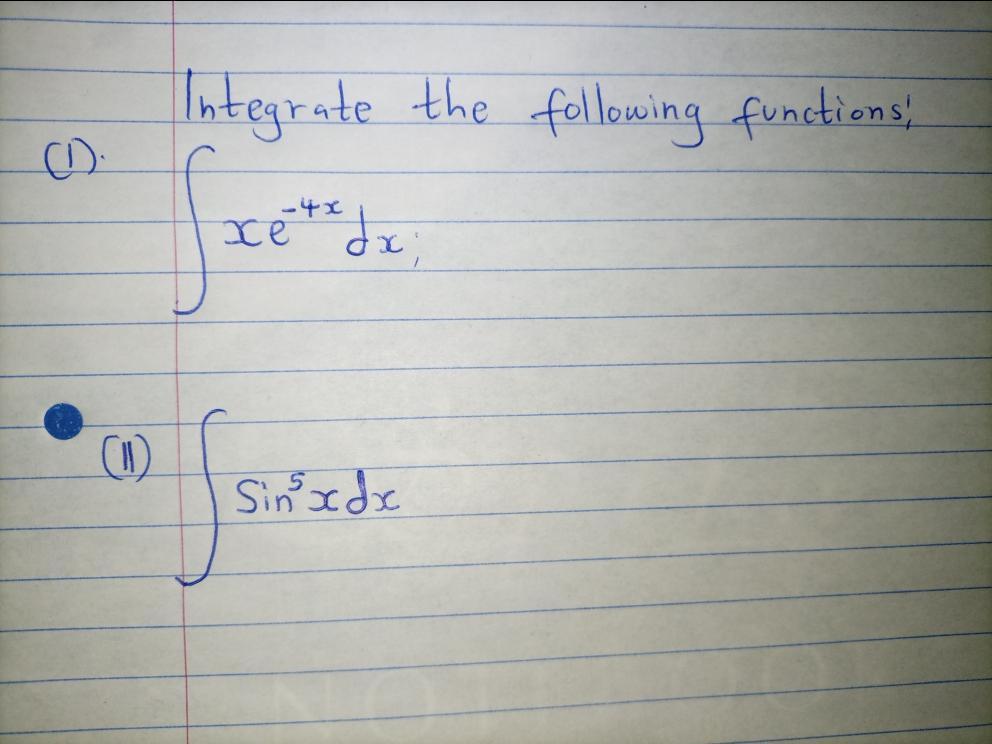 Integrate the following functions;
(I). ∫ xe⁻⁴ˣ dx;
(II) ∫ Sin⁵ x dx